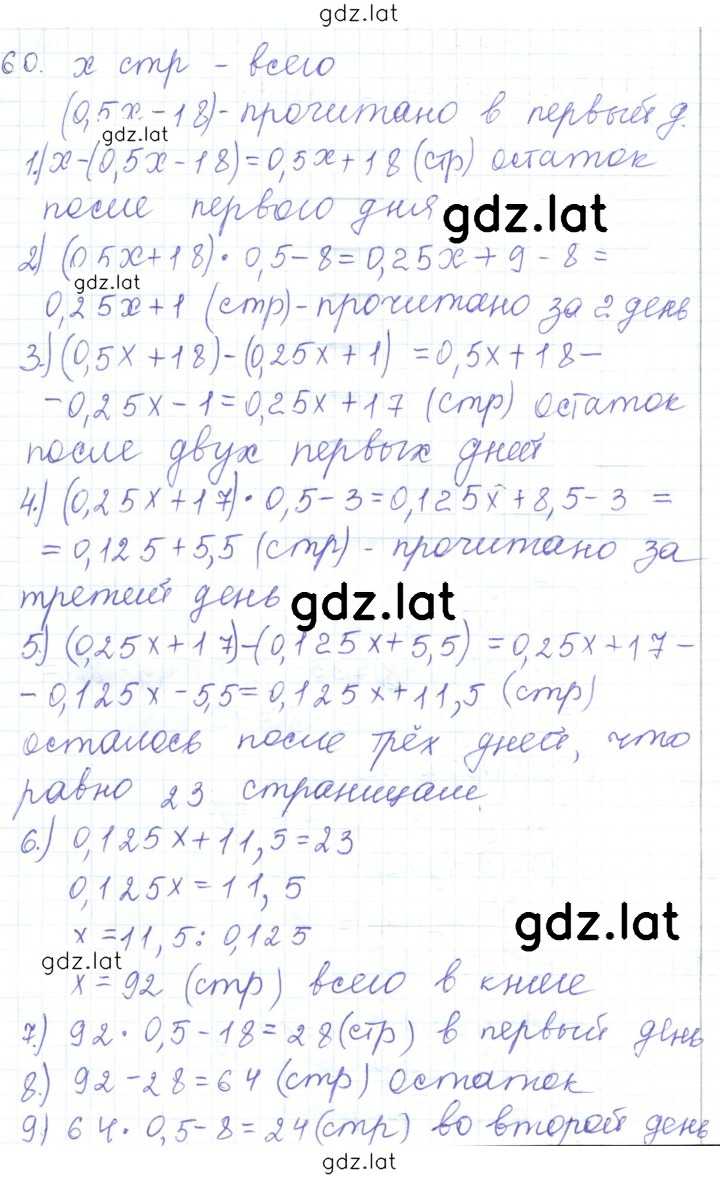 gdz.lat
60. x стр - всего
(0,5x - 18) - прочитано в первый д.
gdz.lat
1.) x - (0,5x - 18) = 0,5x + 18 (стр) остаток
после первого дня
gdz.lat
2) (0,5x + 18) · 0,5 - 8 = 0,25x + 9 - 8 =
gdz.lat
0,25x + 1 (стр) - прочитано за 2 день
3.) (0,5x + 18) - (0,25x + 1) = 0,5x + 18 -
- 0,25x - 1 = 0,25x + 17 (стр) остаток
после двух первых дней
4.) (0,25x + 17) · 0,5 - 3 = 0,125x + 8,5 - 3 =
= 0,125 + 5,5 (стр) - прочитано за
третий день
gdz.lat
5.) (0,25x + 17) - (0,125x + 5,5) = 0,25x + 17 -
- 0,125x - 5,5 = 0,125x + 11,5 (стр)
осталось после трёх дней, что
равно 23 страницам
6.) 0,125x + 11,5 = 23
0,125x = 11,5
x = 11,5 : 0,125
gdz.lat
gdz.lat
x = 92 (стр) всего в книге
7.) 92 · 0,5 - 18 = 28 (стр) в первый день
8.) 92 - 28 = 64 (стр) остаток
9) 64 · 0,5 - 8 = 24 (стр) во второй день
gdz.lat